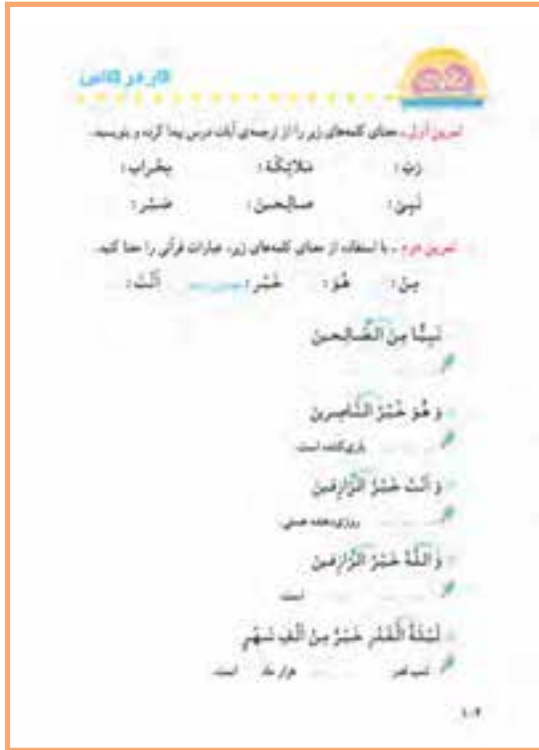 کار در کلاس
تمرین اول ـ معنای کلمه‌های زیر را از ترجمه‌ی آیات درس پیدا کرده و بنویسید.
رَبّ: مَلائِکَة: مِحراب:
نَبِیّ: صالِحین: صَبْر:
تمرین دوم ـ با استفاده از معنای کلمه‌های زیر، عبارات قرآنی را معنا کنید.
مِنْ: هُوَ: خَیْر: اَنْتَ:
نَبِیًّا مِنَ الصّالِحینَ
وَ هُوَ خَیْرُ النّاصِرینَ
یاری‌کننده است
وَ اَنْتَ خَیْرُ الرّازِقینَ
روزی‌دهنده هستی.
وَ اللّٰهُ خَیْرُ الرّازِقینَ
است
لَیْلَةُ الْقَدْرِ خَیْرٌ مِنْ اَلْفِ شَهْرٍ
شب قدر هزار ماه است.